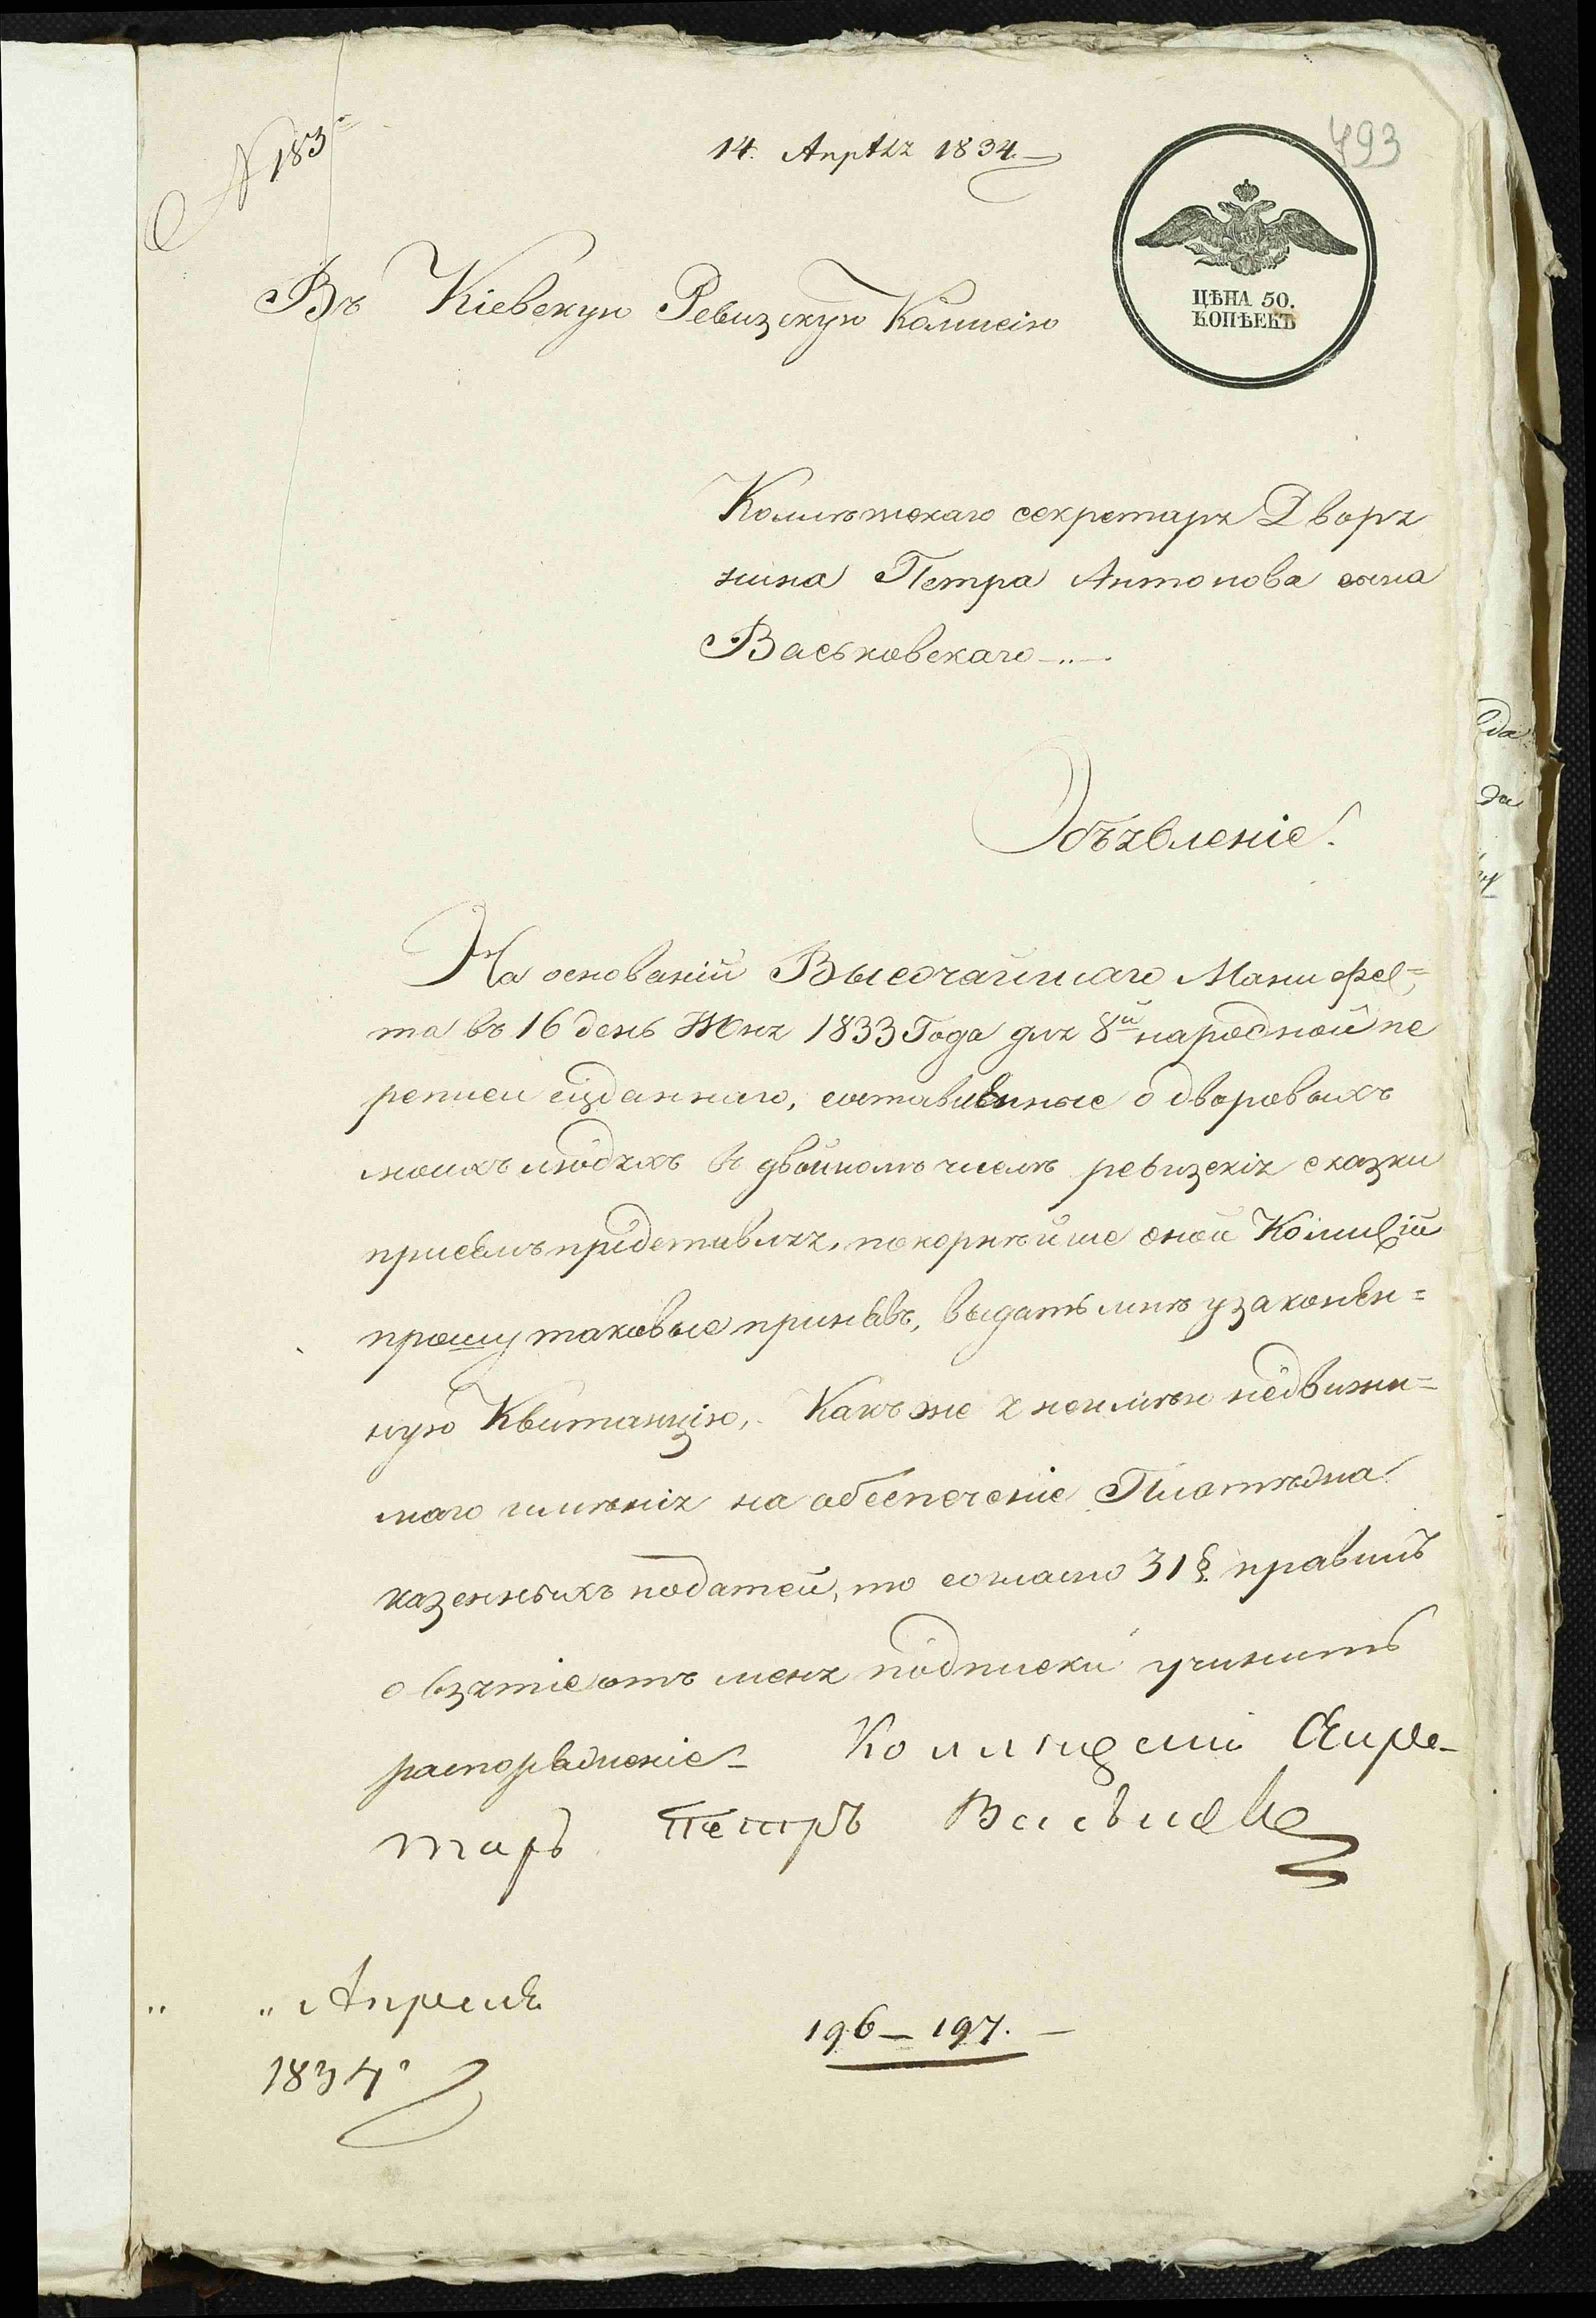 N 183
14. Апрѣля 1834
493
ЦѢНА 50.
КОПѢЕКЪ
Въ Кіевскую Ревизскую Комисію
Коллѣжскаго секретаря Дворя
нина Петра Антонова сына
Васьковскаго
Объявленіе.
На основаніи Высочайшаго Манифес=
та въ 16 день Іюня 1833 Года для 8й народной пе
реписи изданнаго, составленные о дворовыхъ
моихъ людяхъ въ двойномъ числѣ ревизскія сказки
присемъ представляя, покорнѣйше оной Комисіи
прошу таковые принявъ, выдать мнѣ узаконен=
ную Квитанцію, Какъ же я неимѣю недвижи=
маго имѣнія на обеспеченіе Платежа
казенныхъ податей, то согласно 31 § правилъ
о взятіе отъ меня подписки учинить
распоряженіе Коллежскій Секре-
тарь Петръ Васьковс
да
да
Апреля
1834
196 – 197.